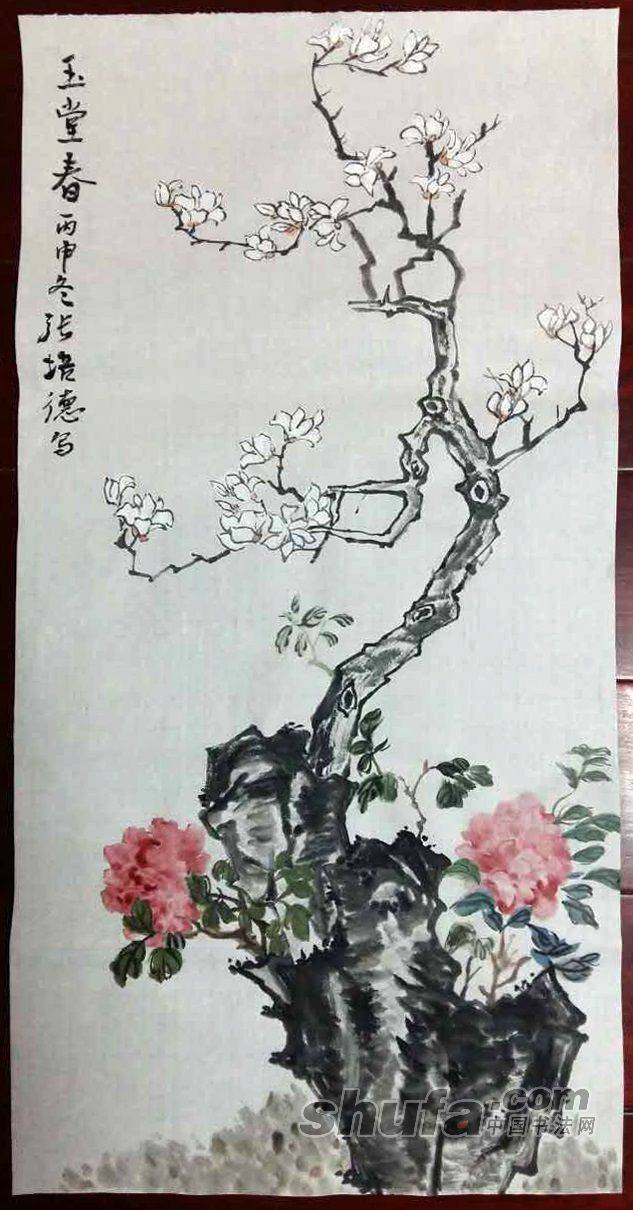 玉堂春丙申冬张培德写
shufa.com
中国书法网